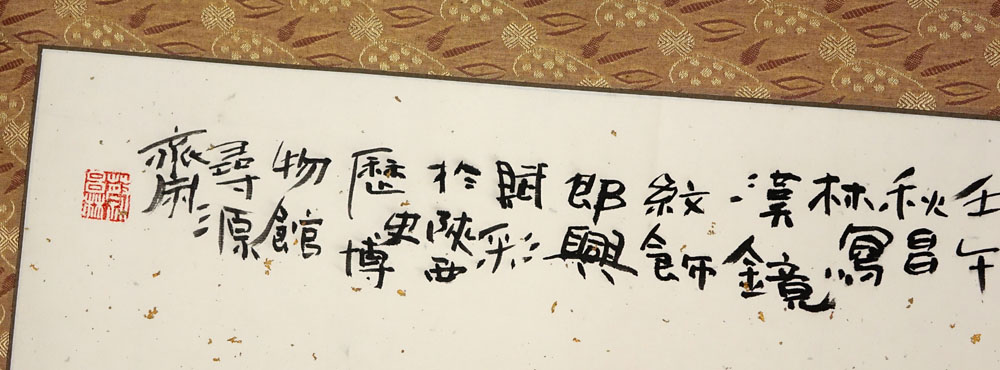 壬午
秋昌
林寫
漢鏡
紋飾
即興
賦彩
於陝西
歷史博
物館
尋源
齋